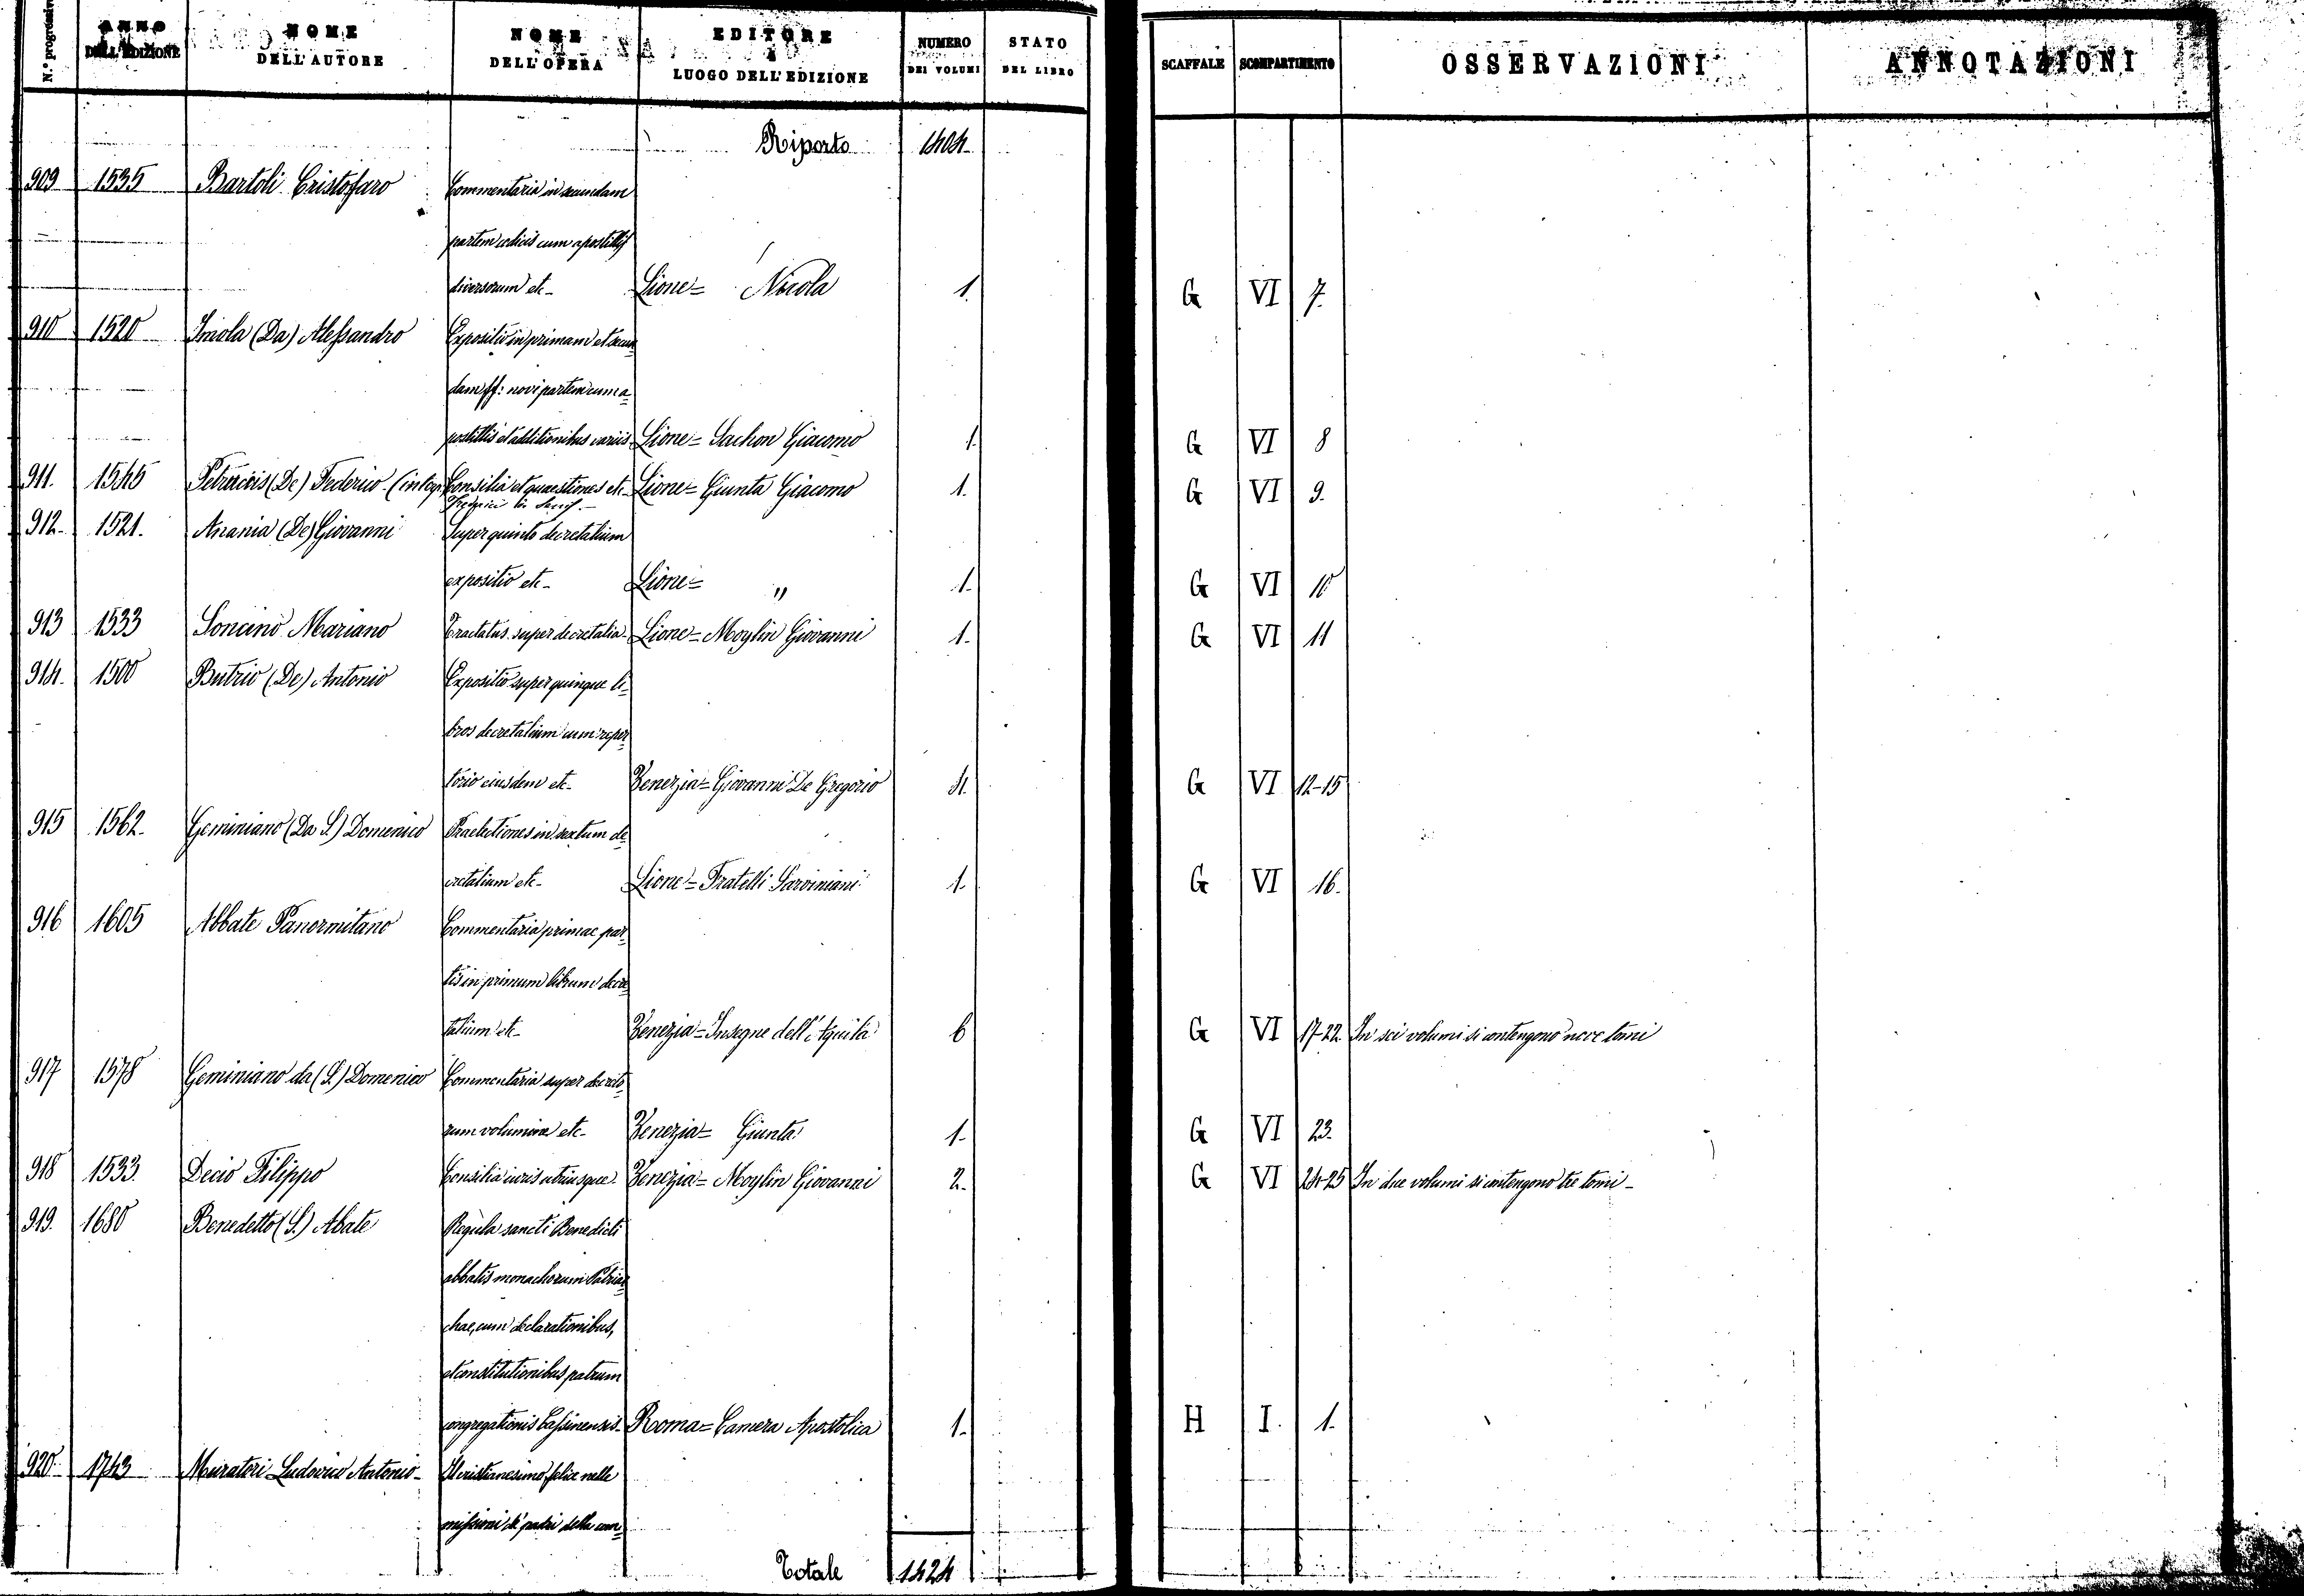 N.° progressivo
ANNO DELL'EDIZIONE
NOME DELL'AUTORE
NOME DELL'OPERA
EDITORE e LUOGO DELL'EDIZIONE
NUMERO DEI VOLUMI
STATO DEL LIBRO
SCAFFALE
SCOMPARTIMENTO
OSSERVAZIONI
ANNOTAZIONI
Riporto 1404
909 1535 Bartoli Cristofaro Commentaria in secundam
partem codicis cum apostillis
diversorum etc- Lione= Nicola 1. G VI 7.
910 1520 Imola (Da) Alessandro Expositio in primam et secun
dam ff: novi partem cum a=
postillis et additionibus variis Lione= Sachon Giacomo 1. G VI 8
911. 1545 (De) Federico Consilia et quaestiones etc- Lione= Giunta Giacomo 1. G VI 9.
912- 1521. Anania (De) Giovanni Super quinto decretalium
expositio etc- Lione= " 1. G VI 10
913 1533 Soncino Mariano Tractatus super decretalia Lione= Moylin Giovanni 1. G VI 11
914. 1500 Butrio (De) Antonio Expositio super quinque li=
bros decretalium cum reper
torio eiusdem etc- Venezia= Giovanni De Gregorio 4. G VI 12-15
915 1562. Geminiano (Da S.) Domenico Praelectiones in sextum de
cretalium etc- Lione= Fratelli 1. G VI 16.
916 1605 Abbate Panormitano Commentaria primae par
tis in primum librum decre
talium etc- Venezia= Insegne dell'Aquila 6 G VI 17-22. In sei volumi si contengono nove tomi
917 1578 Geminiano da (S.) Domenico Commentaria super decreto
rum volumina etc- Venezia= Giunta 1- G VI 23.
918 1533. Decio Filippo Consilia iuris utriusque Venezia= Moylin Giovanni 2- G VI 24-25 In due volumi si contengono tre tomi-
919. 1680 Benedetto (S.) Abate Regula sancti Benedicti
abbatis monachorum Patriar
chae, cum declarationibus,
et constitutionibus patrum
congregationis Cassinensis- Roma= Camera Apostolica 1. H I. 1.
920. 1743 Muratori Ludovico Antonio- Il cristianesimo felice nelle
missioni de' padri della com
Totale 1424